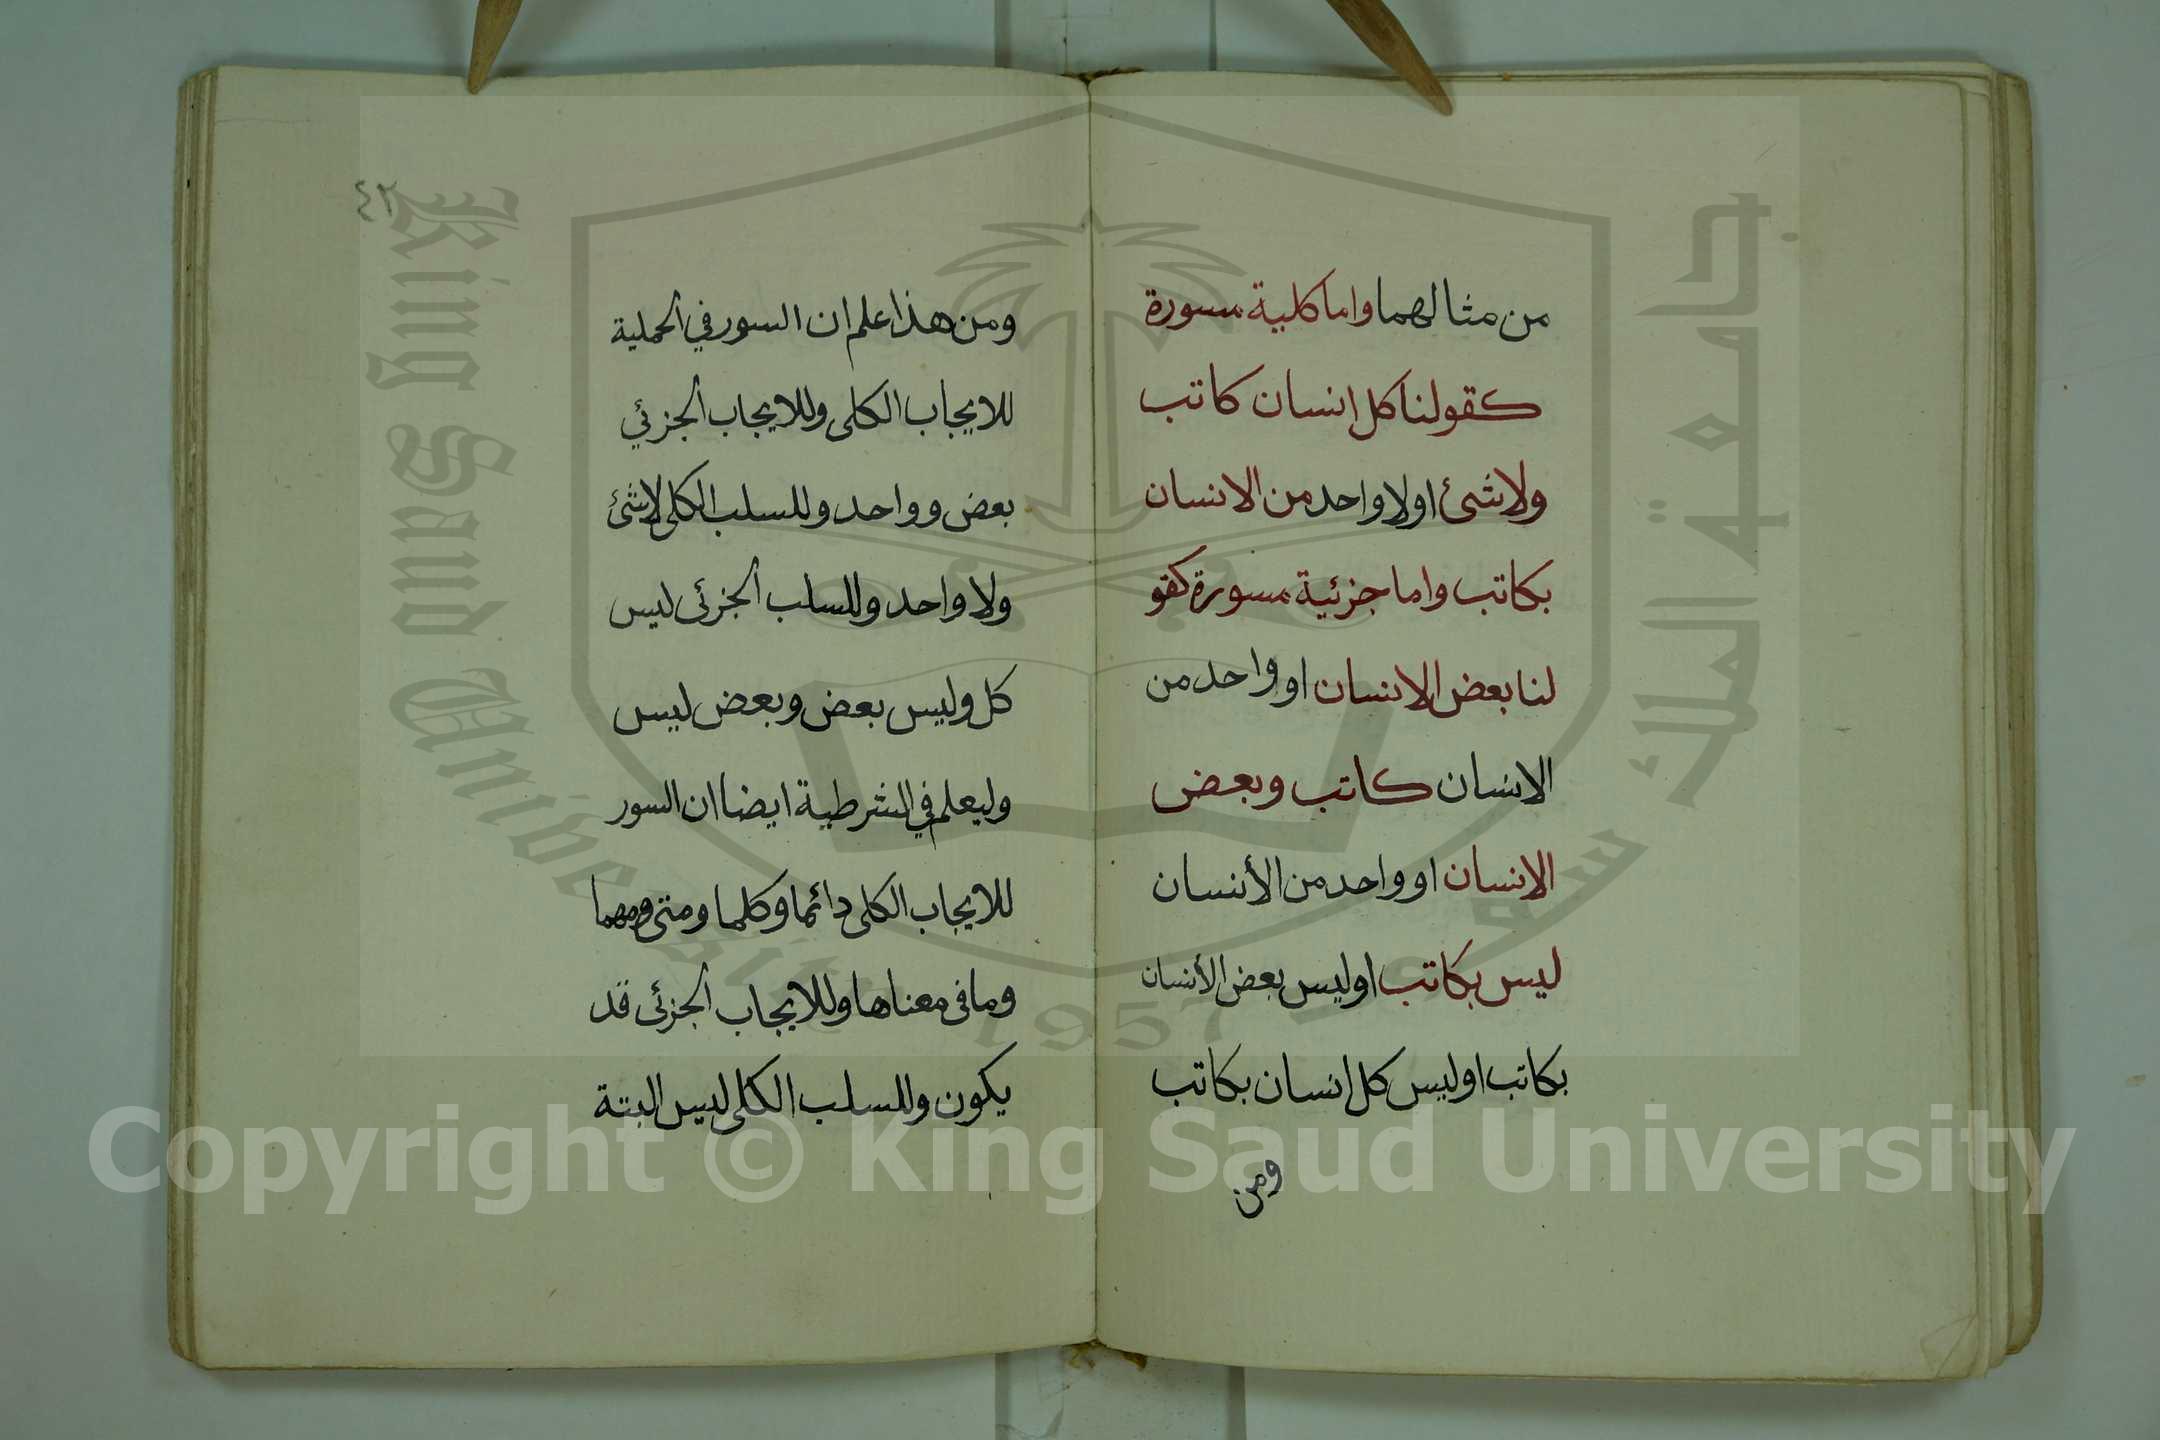 من مثالهما واما كلية مسورة
كقولنا كل انسان كاتب
ولاشئ اولا واحد من الانسان
بكاتب واما جزئية مسورة كقو
لنا بعض الانسان او واحد من
الانسان كاتب وبعض
الانسان او واحد من الأنسان
ليس بكاتب اوليس بعض الأنسان
بكاتب اوليس كل انسان بكاتب
ومن
٤٢
ومن هذا علم ان السور في الحملية
للايجاب الكلى وللايجاب الجزئي
بعض وواحد وللسلب الكلى لاشئ
ولا واحد وللسلب الجزئى ليس
كل وليس بعض وبعض ليس
وليعلم في الشرطية ايضا ان السور
للايجاب الكلى دائما وكلما ومتى ومهما
وما فى معناها وللايجاب الجزئى قد
يكون وللسلب الكلى ليس البتة
King Saud University
جامعة الملك سعود
1957
Copyright © King Saud University